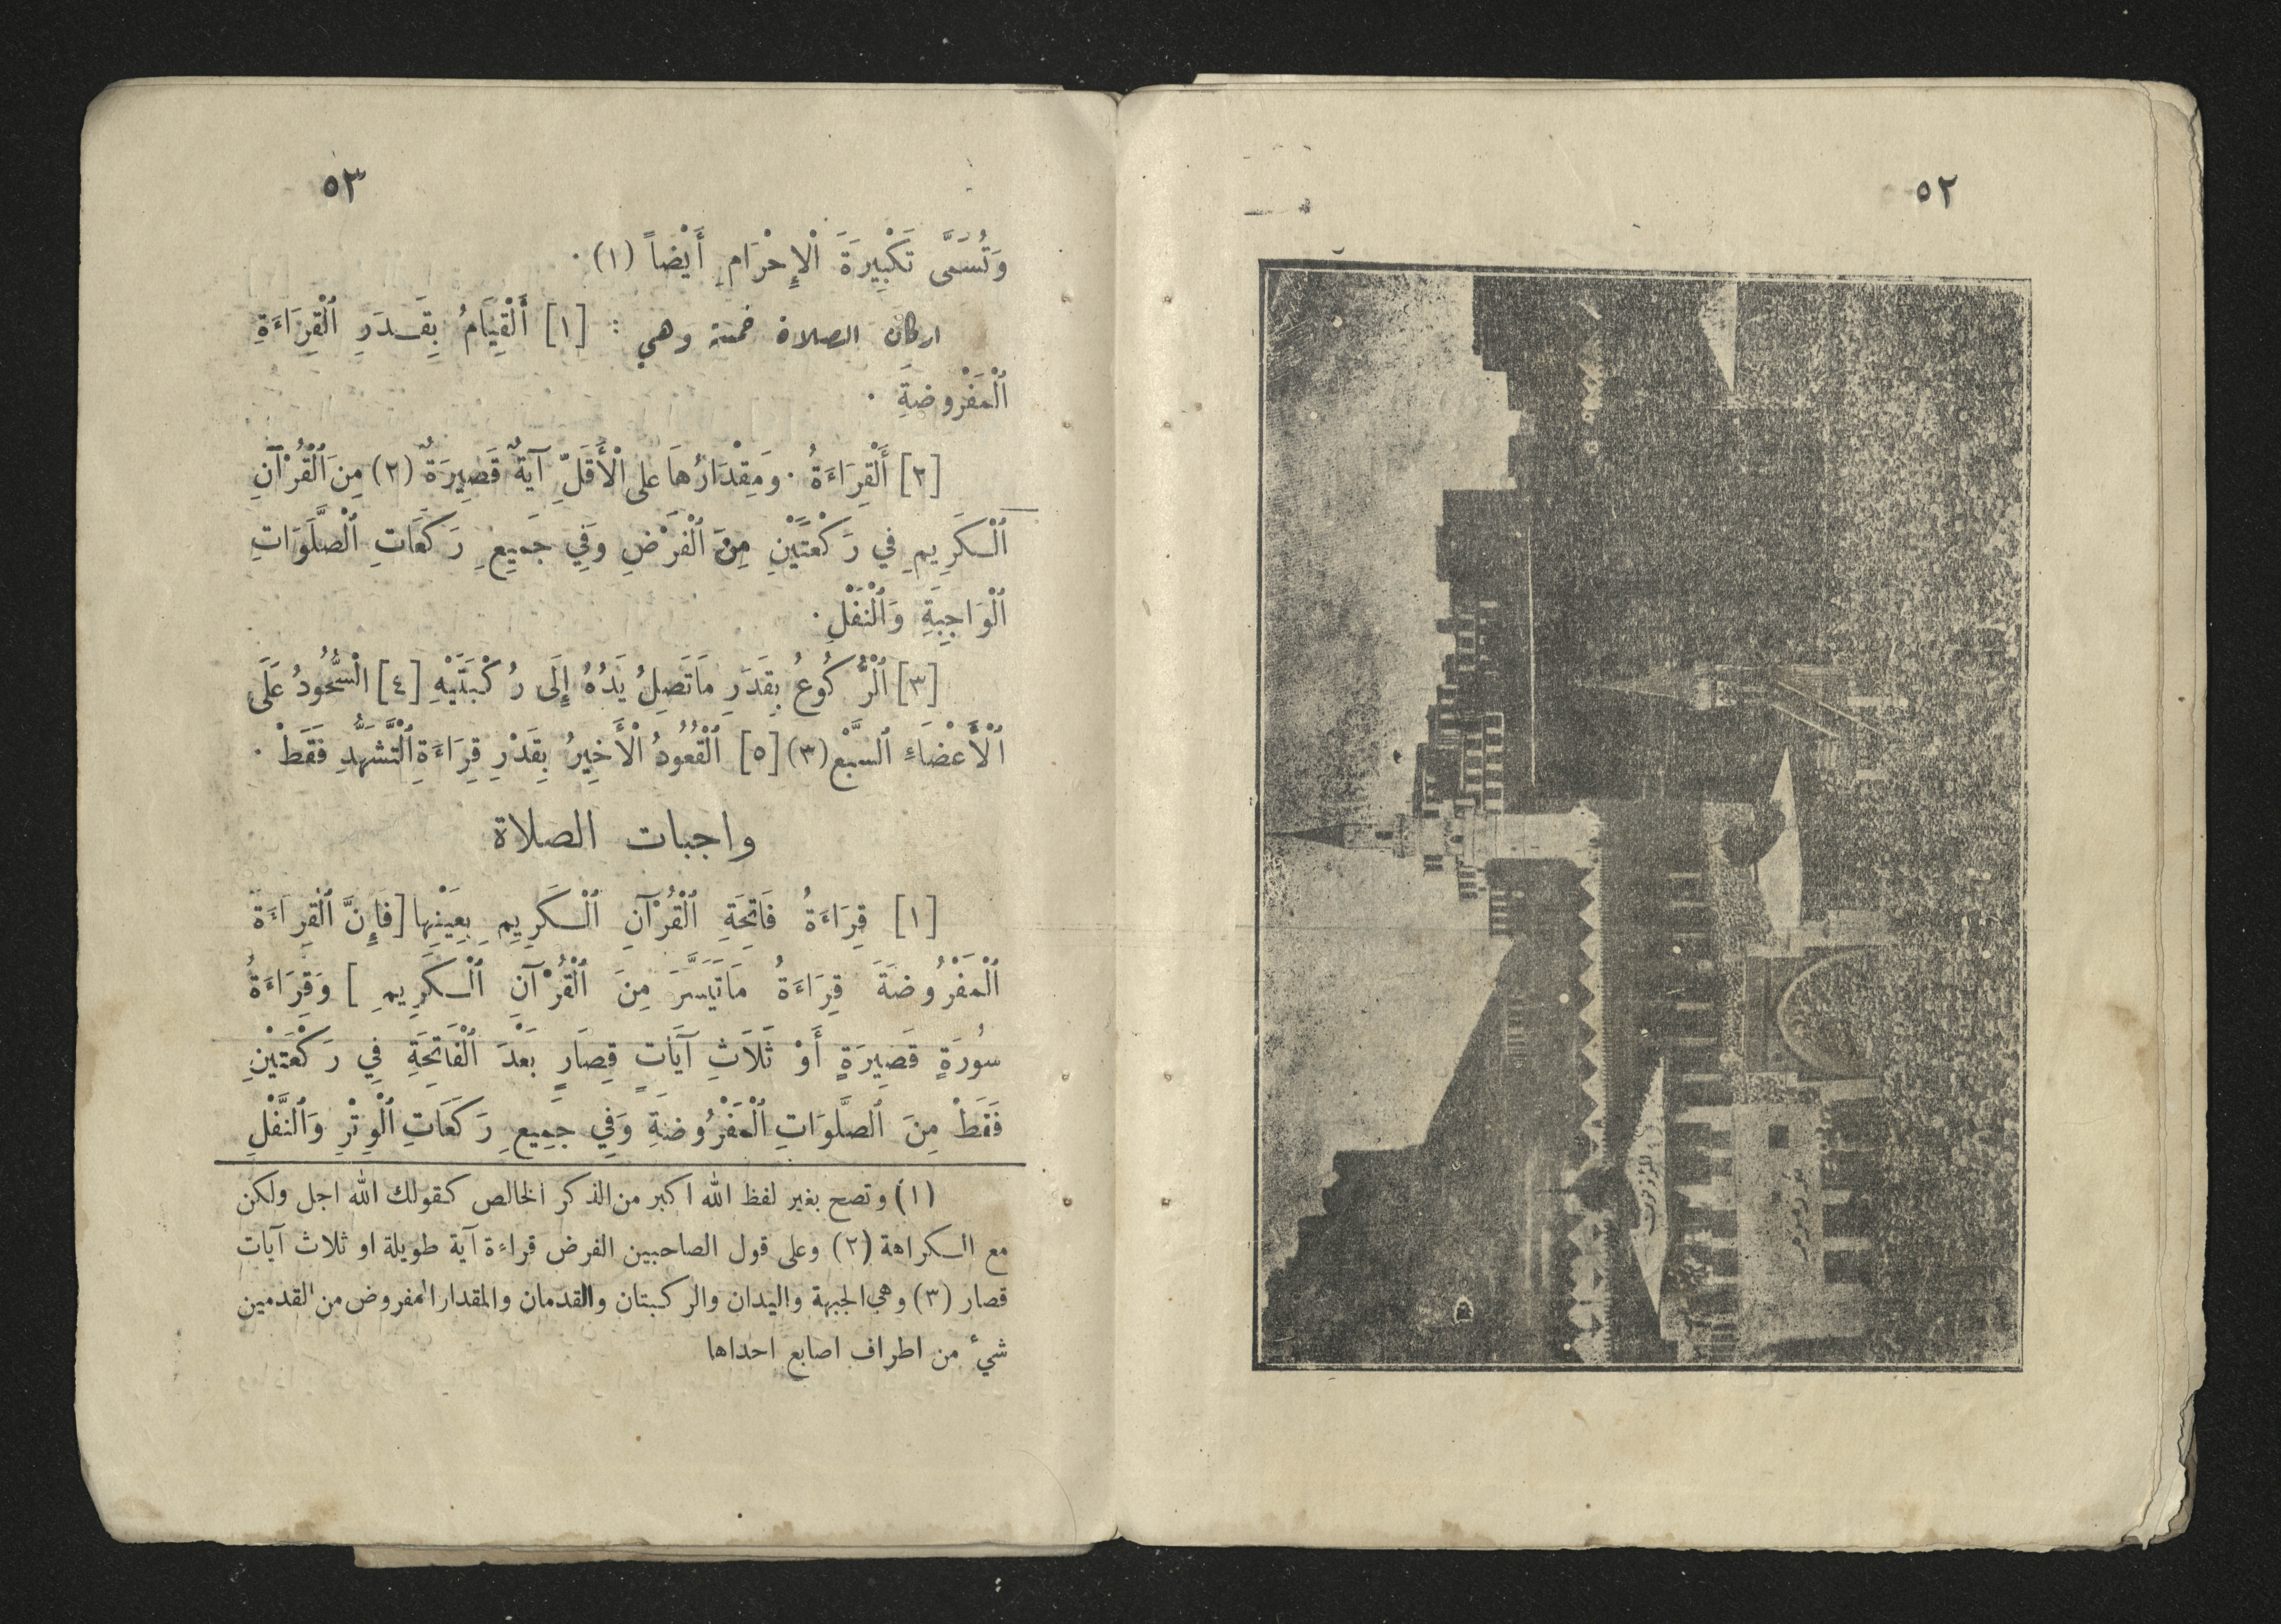 ٥٢
بئر زمزم
٥٣
وَتُسَمَّى تَكْبِيرَةَ الْإِحْرَامِ أَيْضاً (١) ·
اركان الصلاة خمسة وهي : [١] أَلْقِيَامُ بِقَدَرِ ٱلْقِرَاءَةِ
ٱلْمَفْرُوضَةِ ·
[٢] أَلْقِرَاءَةُ · وَمِقْدَارُهَا على الْأَقَلِّ آيَةٌ قَصِيرَةٌ (٢) مِنَ ٱلْقُرْآنِ
ٱلْكَرِيمِ فِي رَكْعَتَيْنِ مِنَ ٱلْفَرْضِ وَفِي جَمِيعِ رَكَعَاتِ ٱلصَّلَوَاتِ
ٱلْوَاجِبَةِ وَٱلْنَفْلِ ·
[٣] ٱلْرُّكُوعُ بِقَدَرِ مَا تَصِلُ يَدُهُ إِلَى رُكْبَتَيْهِ [٤] الْسُّجُودُ عَلَى
ٱلْأَعْضَاءِ ٱلسَّبْعِ (٣) [٥] ٱلْقُعُودُ الْأَخِيرُ بِقَدْرِ قِرَاءَةِ ٱلْتَّشَهُّدِ فَقَطْ ·
واجبات الصلاة
[١] قِرَاءَةُ فَاتِحَةِ ٱلْقُرْآنِ ٱلْكَرِيمِ بِعَيْنِهَا [فَإِنَّ ٱلْقِرَاءَةَ
ٱلْمَفْرُوضَةَ قِرَاءَةُ مَا تَيَسَّرَ مِنَ ٱلْقُرْآنِ ٱلْكَرِيمِ ] وَقِرَاءَةُ
سُورَةٍ قَصِيرَةٍ أَوْ ثَلَاثِ آيَاتٍ قِصَارٍ بَعْدَ ٱلْفَاتِحَةِ فِي رَكْعَتَيْنِ
فَقَطْ مِنَ ٱلصَّلَوَاتِ ٱلْمَفْرُوضَةِ وَفِي جَمِيعِ رَكَعَاتِ ٱلْوِتْرِ وَٱلنَّفْلِ
(١) وتصح بغير لفظ الله اكبر من الذكر الخالص كقولك الله اجل ولكن
مع الكراهة (٢) وعلى قول الصاحبين الفرض قراءة آية طويلة او ثلاث آيات
قصار (٣) وهي الجبهة واليدان والركبتان والقدمان والمقدار المفروض من القدمين
شيء من اطراف اصابع احداها